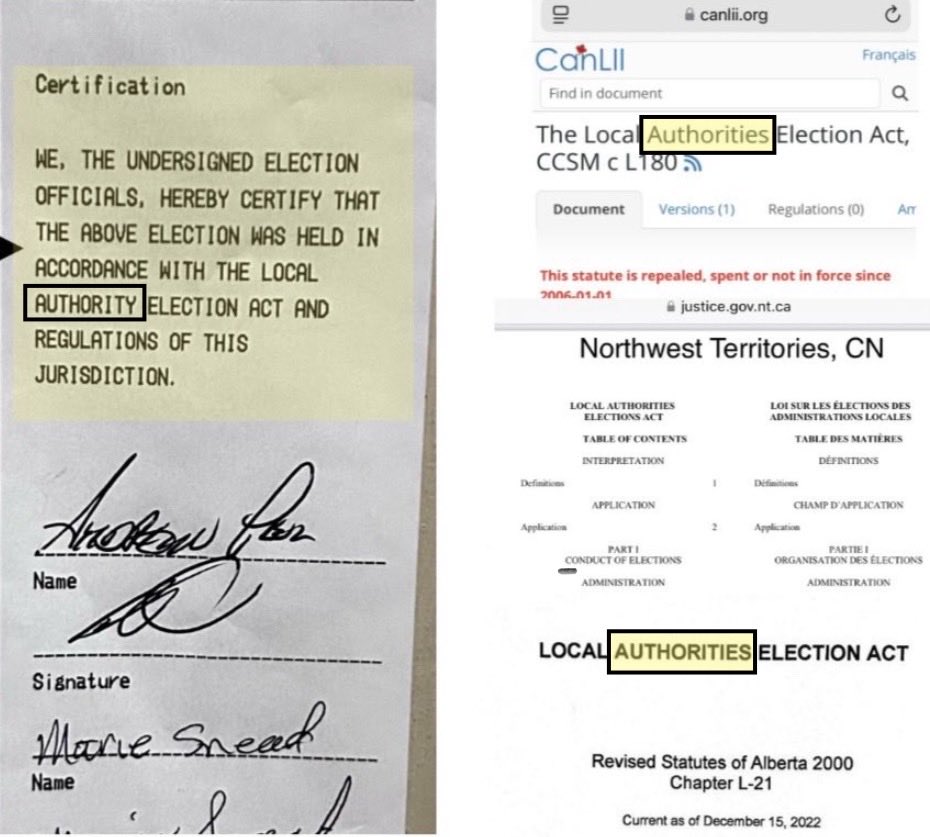 Certification
WE, THE UNDERSIGNED ELECTION
OFFICIALS, HEREBY CERTIFY THAT
THE ABOVE ELECTION WAS HELD IN
ACCORDANCE WITH THE LOCAL
AUTHORITY ELECTION ACT AND
REGULATIONS OF THIS
JURISDICTION.
Andrew
Name
Signature
Marie Snead
Name
canlii.org
CanLII
Français
Find in document
The Local Authorities Election Act,
CCSM c L180
Document Versions (1) Regulations (0) Am
This statute is repealed, spent or not in force since
2006-01-01
justice.gov.nt.ca
Northwest Territories, CN
LOCAL AUTHORITIES
ELECTIONS ACT
TABLE OF CONTENTS
INTERPRETATION
Definitions 1
APPLICATION
Application 2
PART I
CONDUCT OF ELECTIONS
ADMINISTRATION
LOI SUR LES ÉLECTIONS DES
ADMINISTRATIONS LOCALES
TABLE DES MATIÈRES
DÉFINITIONS
Définitions
CHAMP D'APPLICATION
Application
PARTIE I
ORGANISATION DES ÉLECTIONS
ADMINISTRATION
LOCAL AUTHORITIES ELECTION ACT
Revised Statutes of Alberta 2000
Chapter L-21
Current as of December 15, 2022